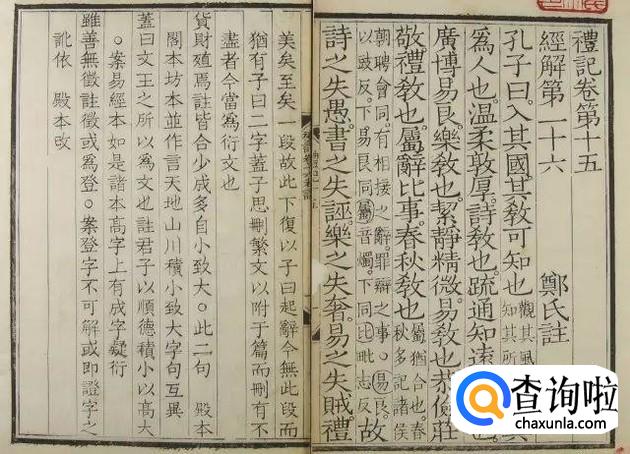 禮記卷第十五
經解第二十六 鄭氏註
孔子曰。入其國。其教可知也 觀其風 知其所
為人也。溫柔敦厚。詩教也。疏通知遠
廣博易良。樂教也。絜靜精微。易教也。恭儉莊
敬。禮教也。屬辭比事。春秋教也 屬猶合也。春 秋多記諸侯
朝聘會同。有相接之辭。罪辯之事。易良。
以豉反。下易良同。屬音燭。下同。比毗志反。 故
詩之失愚。書之失誣。樂之失奢。易之失賊。禮
美矣至矣一段故此下復以子曰起辭今無此段而
猶有子曰二字蓋子思刪繁文以附于篇而刪有不
盡者今當為衍文也
貨財殖焉註皆合少成多自小致大○此二句 殿本
閣本坊本並作言天地山川積小致大字句互異
蓋曰文王之所以為文也註君子以順德積小以高大
○案易經本如是諸本高字上有成字疑衍
雖善無徵註徵或為登○案登字不可解或即證字之
訛依 殿本改
查询啦
chaxunla.com